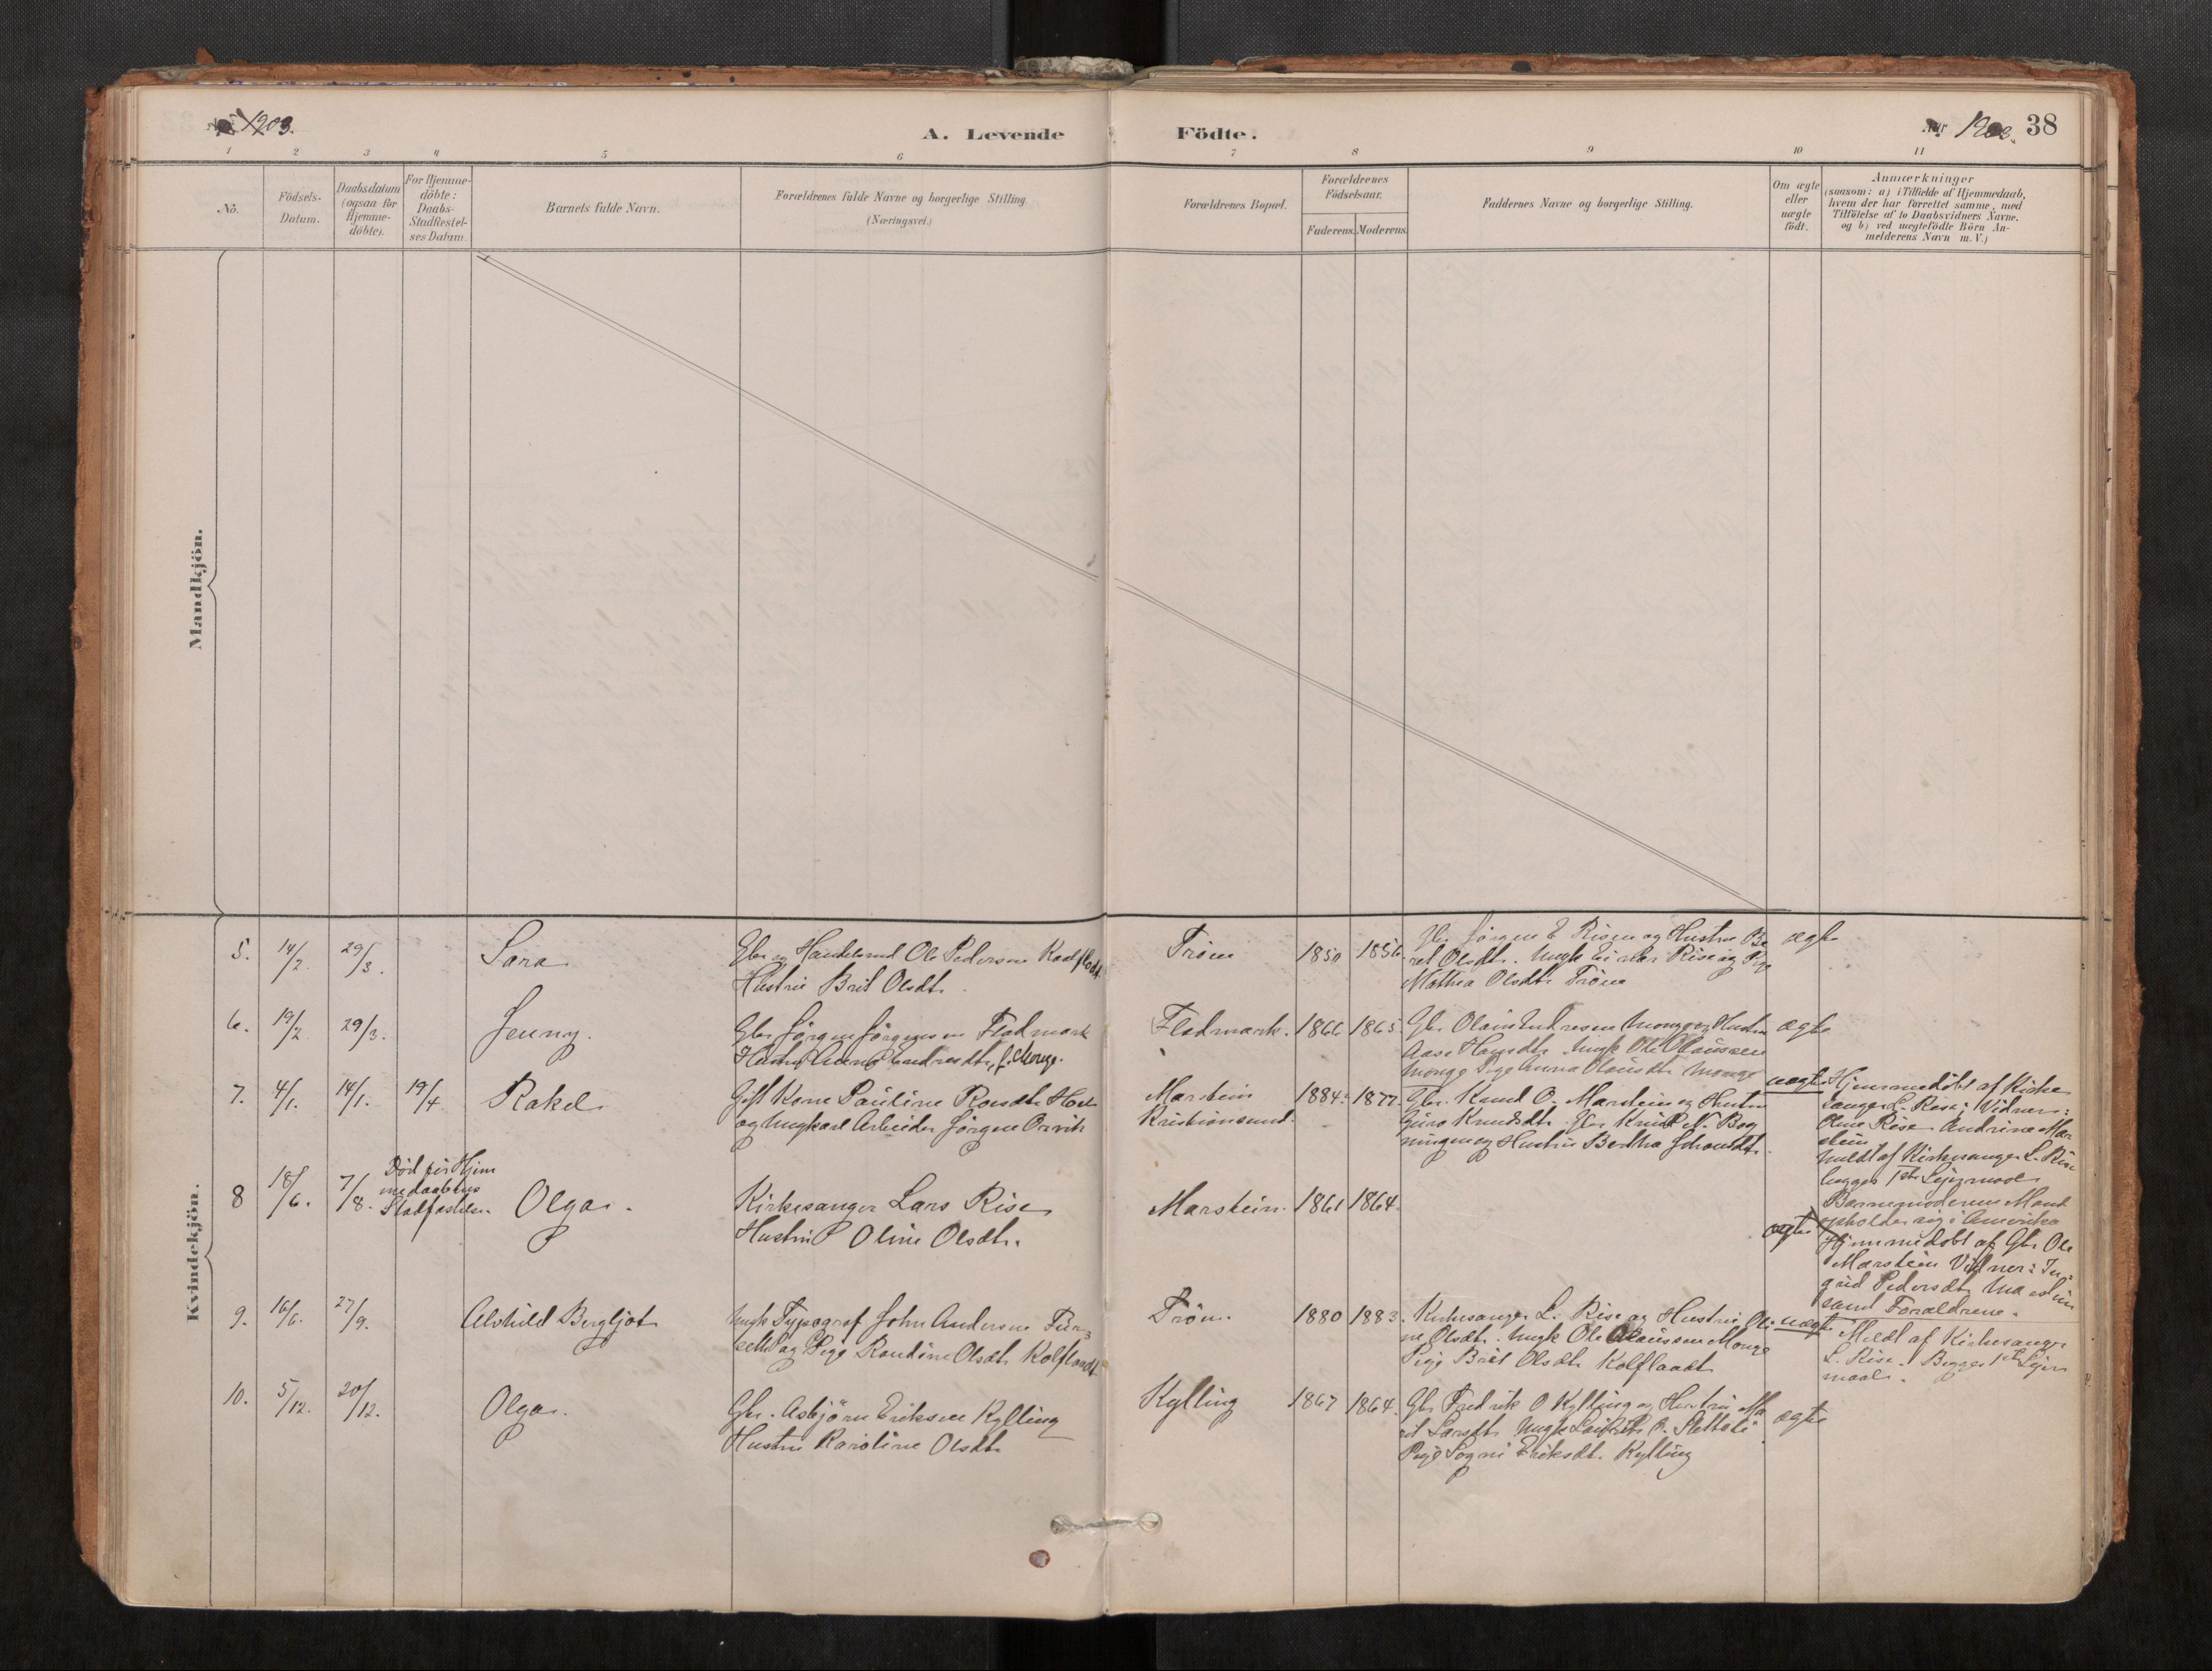 1903.
A. Levende
Födte.
Aar 1903.
38
1
2
3
4
5
6
7
8
9
10
11
No.
Födsels-
Datum.
Daabsdatum
(ogsaa for
Hjemme-
döbte).
For Hjemme-
döbte:
Daabs-
Stadfæstel-
ses Datum.
Barnets fulde Navn.
Forældrenes fulde Navne og borgerlige Stilling.
(Næringsvei.)
Forældrenes Bopæl.
Forældrenes
Födselsaar.
Faderens.
Moderens.
Faddernes Navne og borgerlige Stilling.
Om ægte
eller
uægte
födt.
Anmærkninger
(saasom: a) i Tilfælde af Hjemmedaab,
hvem der har forrettet samme, med
Tilföielse af to Daabsvidners Navne,
og b) ved uægtefödte Börn An-
melderens Navn m. V.)
Mandkjön.
Kvindekjön.
5. 14/2. 29/3. Sara
Gbr og Ole Pedersen
Hustru Brit Olsdt.
Tröen 1850 1856
Gbr Jörgen E Risen og Hustru Be
ret Olsdt. Ungk Einar Rise og Pige
Mathea Olsdt. Tröen
ægte
6. 19/2. 29/3. Jenny.
Gbr Jörgen Jörgensen Fladmark
Hustru Anne Endresdtr, f. Monge.
Fladmark. 1866 1865.
Gbr. Olaus Endresen Monge og Hustru
Aase Hansdt. Ungk Ole Olaussen
Monge Pige Anna Olausdt. Monge
ægte
7. 4/1. 14/1. 19/4. Rakel
Gift Kone Pauline
og Ungkarl Arbeider Jörgen Orvik
Marstein
Kristiansund.
1884. 1877.
Gbr. Knud O. Marstein og Hustru
Guro Knudsdt. Gbr Knud N. Bog
ningen og Hustru Bertha
uægte
Hjemmedöbt af Kirke
sanger L. Rise; Vidner:
Oline Rise Andrine Mar
stein
Meldt af Kirkesanger L. Rise
begges 1ste Leiermaal
Barnemoderens Mand
opholder sig i Amerika
8 18/6. 7/8.
Död för Hjem
medaabens
Stadfæstelse.
Olga.
Kirkesanger Lars Rise
Hustru Oline Olsdt.
Marstein. 1861 1864.
ægte
Hjemmedöbt af Gbr Ole
Marstein Vidner: In-
grid Pedersdt. Marstein
samt Forældrene.
9. 16/6. 27/9. Alvhild Bergljot
Ungk Typograf John Andersen
og Pige Randine Olsdt. Kolflaadt
Tröen. 1880 1883.
Kirkesanger L. Rise og Hustru Oli-
ne Olsdt. Ungk Ole Olaussen Monge
Pige Brit Olsdt. Kolflaadt
uægte
Meldt af Kirkesanger
L. Rise. Begges 1ste Leier
maal.
10. 5/12. 20/12. Olga.
Gbr. Asbjörn Eriksen Kylling
Hustru Karoline Olsdt.
Kylling 1867 1864.
Gbr Fredrik O Kylling og Hustru Ma
rit Larsdt. Ungk O.
Pige Sogni Eriksdt. Kylling
ægte